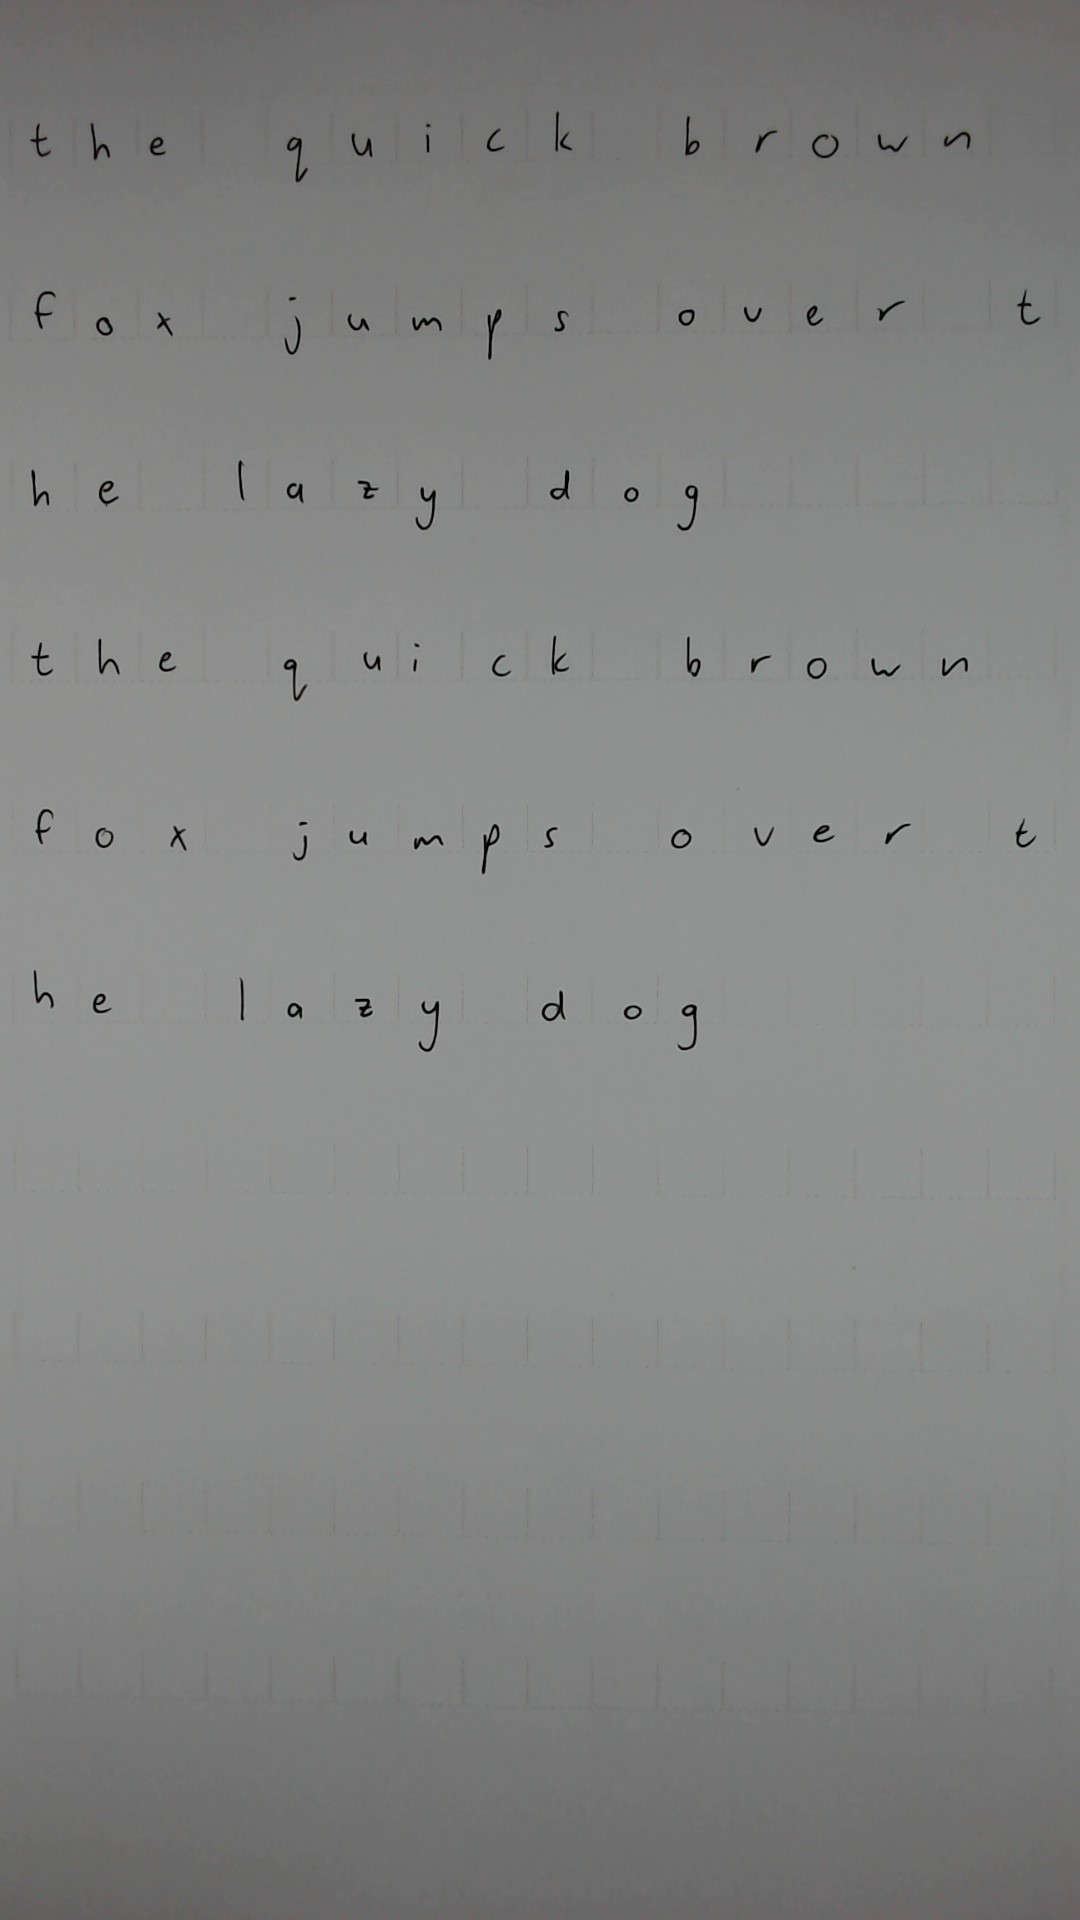 the quick brown
fox jumps over t
he lazy dog
the quick brown
fox jumps over t
he lazy dog